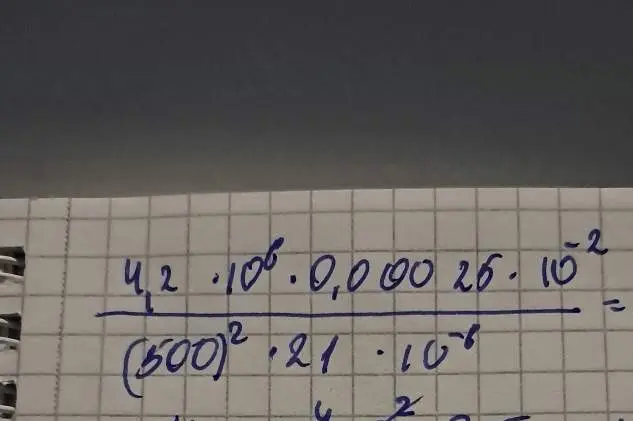 4,2 · 10⁶ · 0,00025 · 10⁻²
(500)² · 21 · 10⁻⁶ =